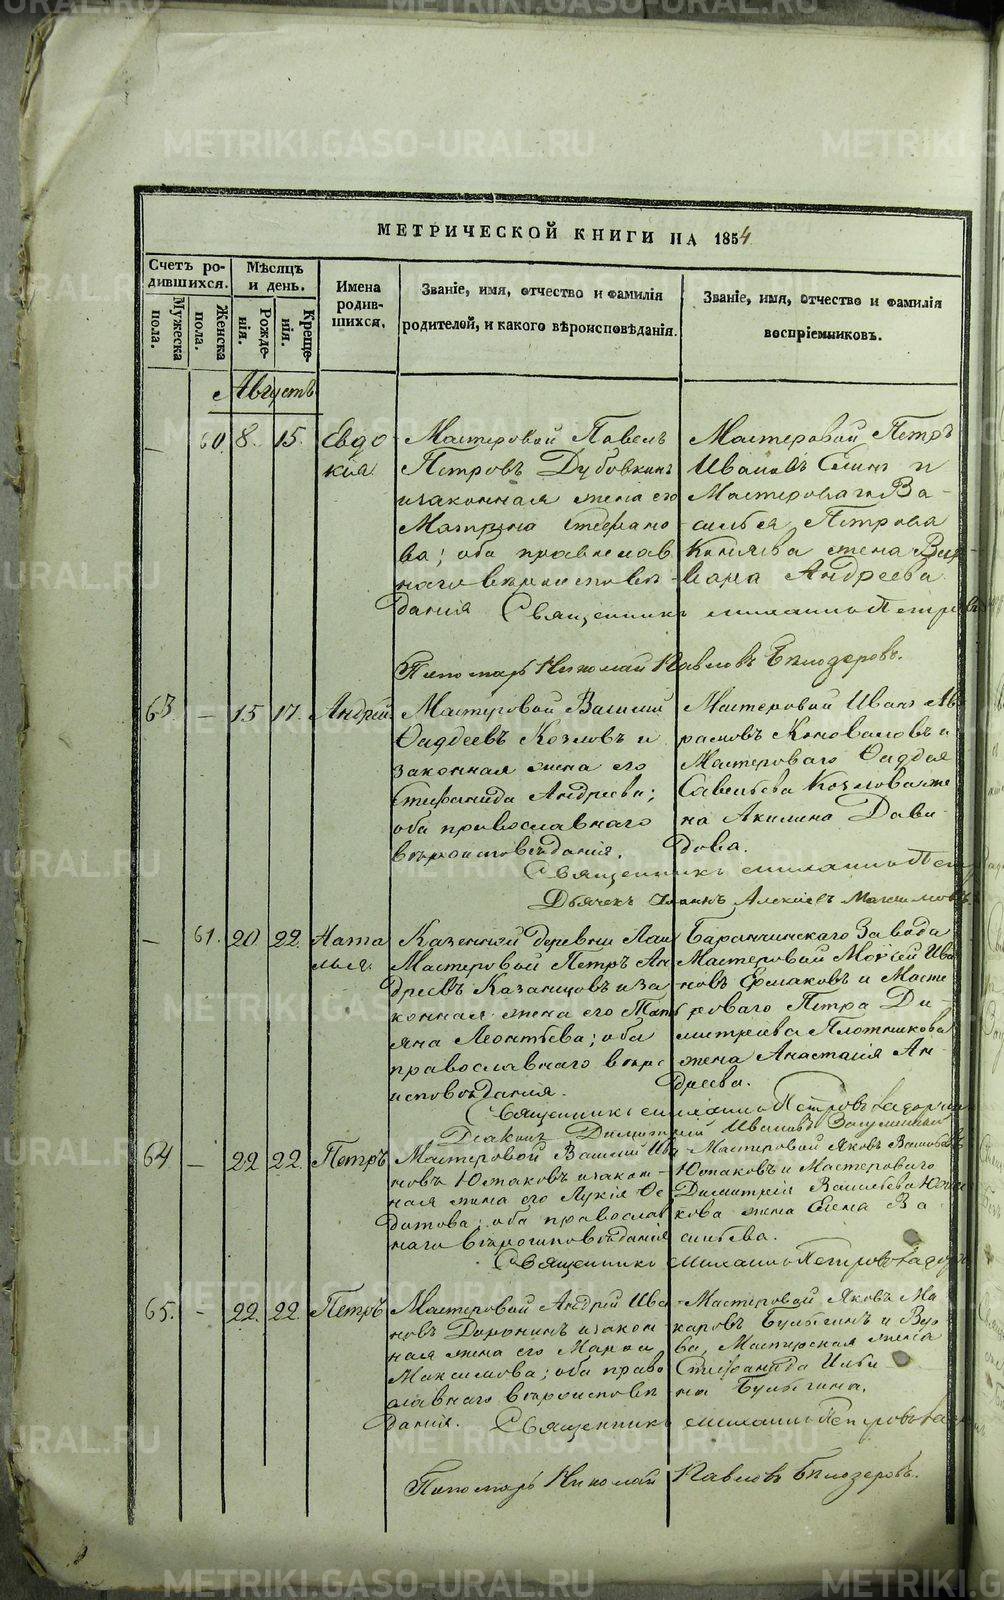 МЕТРИЧЕСКОЙ КНИГИ НА 1854
Счетъ ро-
дившихся.
Мужеска
пола.
Женска
пола.
Мѣсяцъ
и день.
Рожде-
нія.
Креще-
нія.
Имена
родив-
шихся.
Званіе, имя, отчество и фамилія
родителей, и какого вѣроисповѣданія.
Званіе, имя, отчество и фамилія
воспріемниковъ.
Августъ
— 60. 8. 15. Евдо
кія
Мастеровой Павелъ
Петровъ Дубовкинъ
изаконная жена его
Матрона Стефано
ва; оба православ
наго вѣроисповѣ
данія
Мастеровой Петръ
Ивановъ и
Мастероваго Ва-
силья Петрова
Копылева жена
Андреева
Священникъ Михаилъ Петровъ
Пономарь Николай Павловъ Бѣлозеровъ.
63. — 15 17. Андрей
Мастеровой Василий
Ѳаддеевъ Козловъ и
законная жена его
Стефанида Андреева;
оба православнаго
вѣроисповѣданія.
Мастеровой Иванъ Ав
рамовъ Коноваловъ и
Мастероваго Ѳаддея
Савельева Козлова же
на Акилина Дави-
дова.
Священникъ Михаилъ
Дьячекъ Іоаннъ Алексѣевъ Максимовъ
— 61. 20 22. Ната
лья.
Казенной деревни Лаи
Мастеровой Петръ Ан
дреевъ Казанцовъ иза
конная жена его Тать
яна Леонтьева; оба
православнаго вѣро
исповѣданія.
Баранчинскаго Завода
Мастеровой Моѵсей Ива
новъ Ермаковъ и Масте
роваго Петра Ди-
митріева Плотникова
жена Анастасія Ан-
дреева.
Священникъ Михаилъ Петровъ
Діаконъ Димитрій Ивановъ
64 — 22 22. Петръ
Мастеровой Василий Ива
новъ Юшаковъ изакон-
ная жена его Лукія Ѳе
дотова; оба православ
наго вѣроисповѣданія
Мастеровой Яковъ
Юшаковъ и Мастероваго
Димитрія Васильева
кова жена Елена Ва
сильева.
Священникъ Михаилъ Петровъ
65. — 22. 22. Петръ
Мастеровой Андрей Ива
новъ Доронинъ изакон-
ная жена его Марѳа
Максимова; оба право
славнаго вѣроисповѣ
данія.
Мастеровой Яковъ Ма
каровъ Булыгинъ и Вдо
ва, Мастерская жена
Стефанида Ильи
на Булыгина.
Священникъ Михаилъ Петровъ
Пономарь Николай Павловъ Бѣлозеровъ.
METRIKI.GASO-URAL.RU